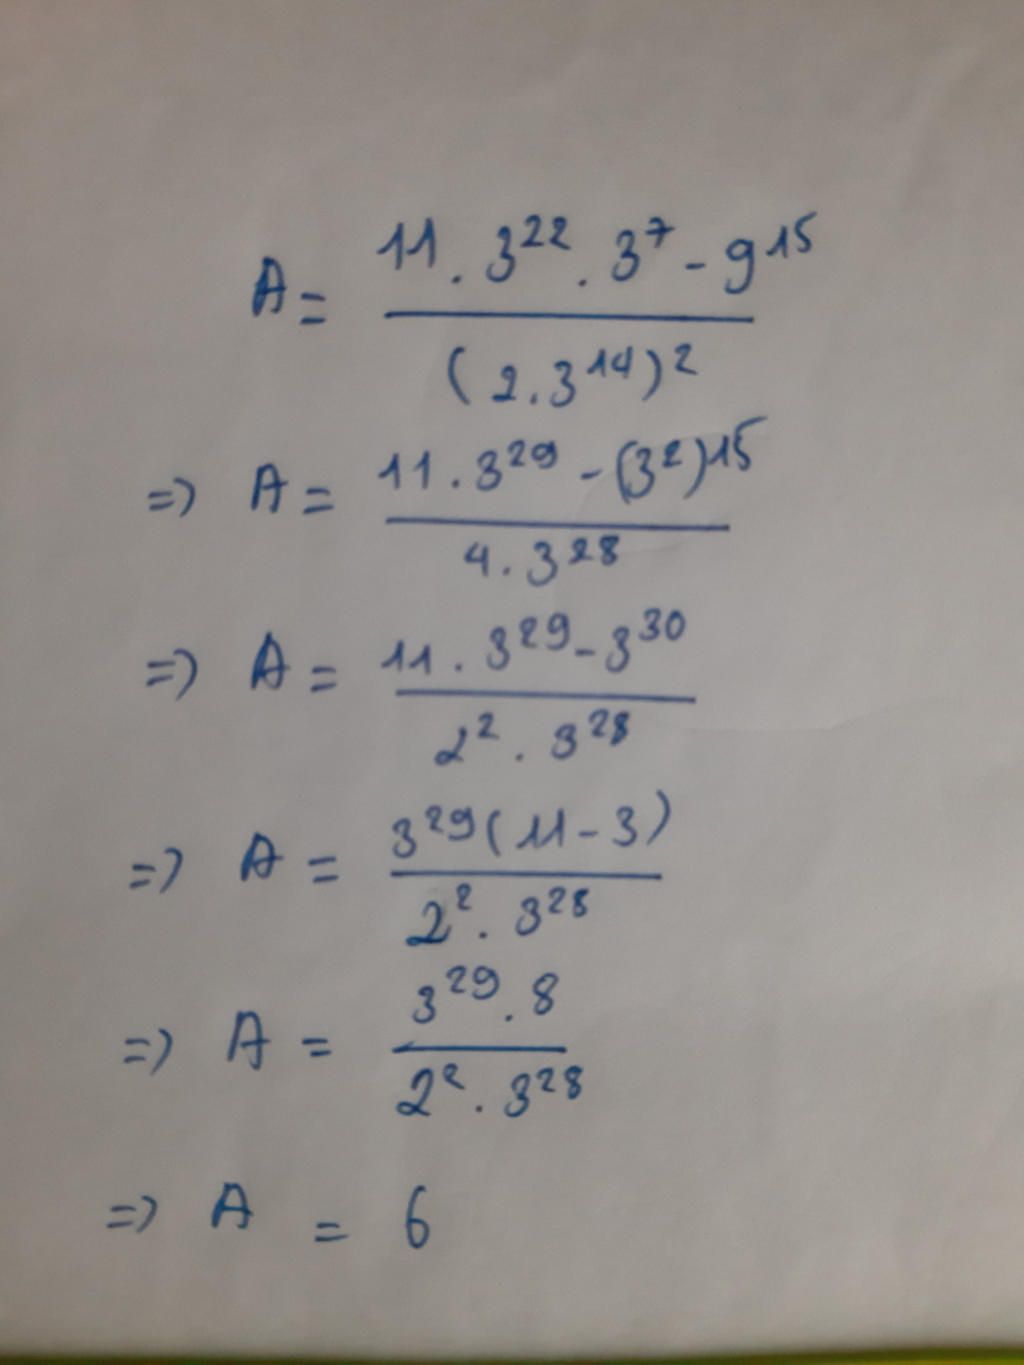 A = \frac{11 . 3^{22} . 3^7 - 9^{15}}{(2 . 3^{14})^2}
=> A = \frac{11 . 3^{29} - (3^2)^{15}}{4 . 3^{28}}
=> A = \frac{11 . 3^{29} - 3^{30}}{2^2 . 3^{28}}
=> A = \frac{3^{29} (11 - 3)}{2^2 . 3^{28}}
=> A = \frac{3^{29} . 8}{2^2 . 3^{28}}
=> A = 6